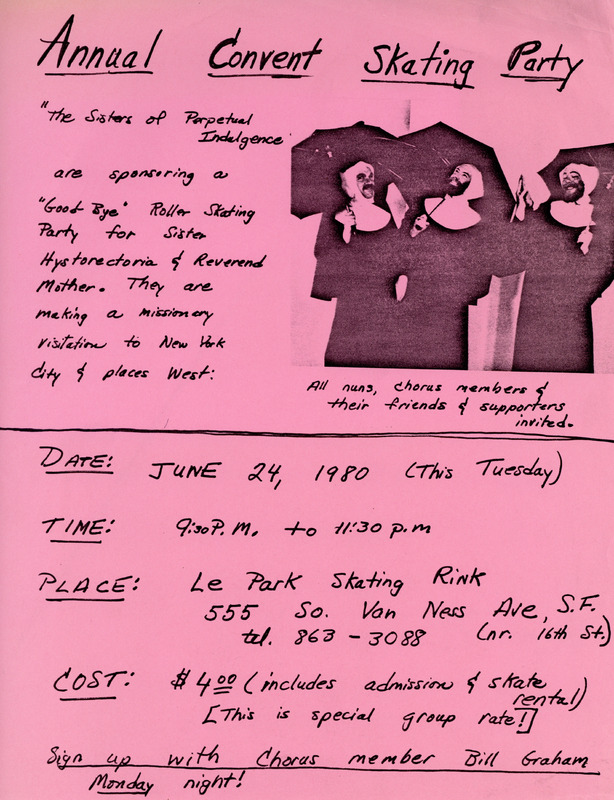 Annual Convent Skating Party
"The Sisters of Perpetual
Indalgence
are sponsoring a
"Good-Bye" Roller Skating
Party for Sister
Hystorectoria & Reverend
Mother. They are
making a missionary
visitation to New York
City & places West:
All nuns, chorus members &
their friends & supporters
invited.
DATE: JUNE 24, 1980 (This Tuesday)
TIME: 9:30 P.M. to 11:30 p.m
PLACE: Le Park Skating Rink
555 So. Van Ness Ave, S.F.
tel. 863-3088 (nr. 16th St.)
COST: $4.00 (includes admission & skate
rental)
[This is special group rate!]
Sign up with Chorus member Bill Graham
Monday night!